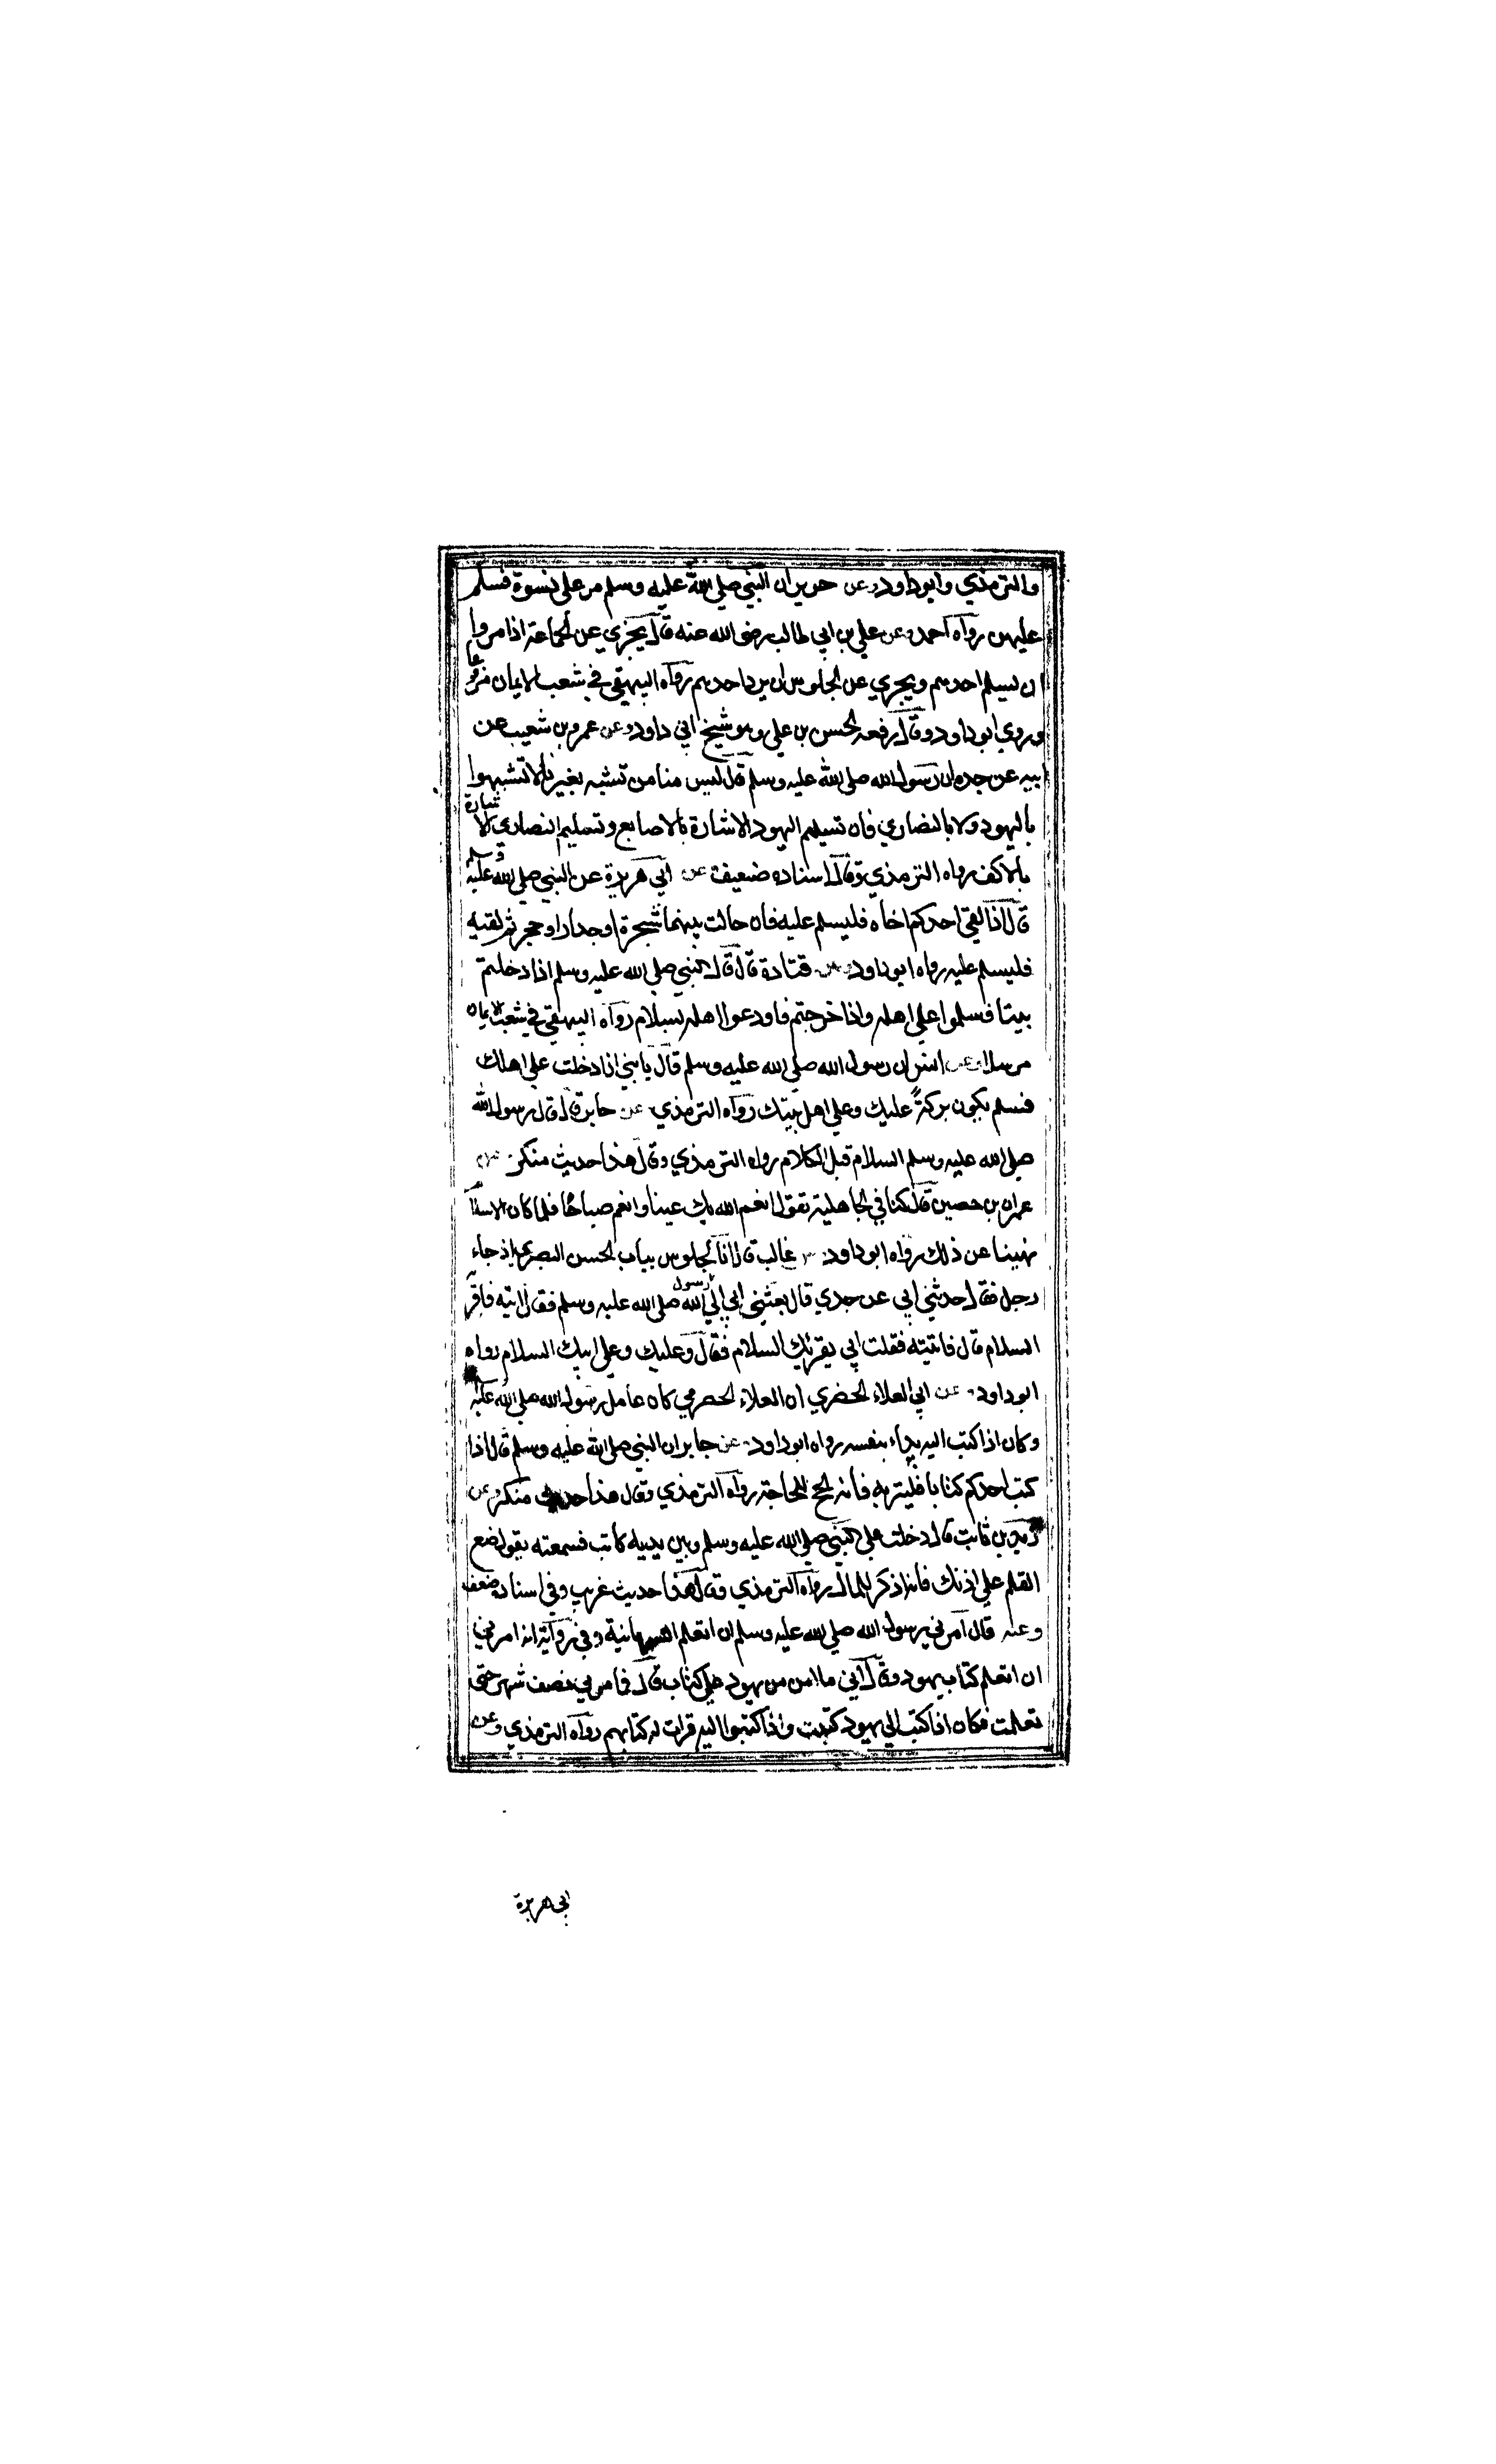 والترمذي وابوداود وعن جرير ان النبي صلى الله عليه وسلم مر على نسوة فسلم
عليهن رواه احمد وعن علي بن ابي طالب رضي الله عنه قال يجزي عن الجماعة اذا مروا
ان يسلم احدهم ويجزي عن الجلوس ان يرد احدهم رواه البيهقي في شعب الايمان مرفوعا
وروي ابو داود وقال رفعه الحسن بن علي وهو شيخ ابي داود وعن عمرو بن شعيب عن
ابيه عن جده ان رسول الله صلى الله عليه وسلم قال ليس منا من تشبه بغيرنا لا تشبهوا
باليهود ولا بالنصاري فان تسليم اليهود الاشارة بالاصابع وتسليم النصاري الاشارة
بالاكف رواه الترمذي وقال اسناده ضعيف عن ابي هريرة عن النبي صلى الله عليه وسلم
قال اذا لقي احدكم اخاه فليسلم عليه فان حالت بينهما شجرة اوجدار اوحجر ثم لقيه
فليسلم عليه رواه ابوداود وعن قتادة قال قال النبي صلى الله عليه وسلم اذا دخلتم
بيتا فسلموا علي اهله واذا خرجتم فاودعوا اهله بسلام رواه البيهقي في شعب الايمان
مرسلا وعن انس ان رسول الله صلى الله عليه وسلم قال يا بني اذا دخلت علي اهلك
فسلم يكون بركة عليك وعلي اهل بيتك رواه الترمذي عن جابر قال قال رسول الله
صلى الله عليه وسلم السلام قبل الكلام رواه الترمذي وقال هذا حديث منكر وعن
عمران بن حصين قال كنا في الجاهلية نقول انعم الله بك عينا وانعم صباحا فلما كان الاسلام
نهينا عن ذلك رواه ابوداود وعن غالب قال انا لجلوس بباب الحسن البصري اذ جاء
رجل فقال حدثني ابي عن جدي قال بعثني ابي الي رسول الله صلى الله عليه وسلم فقال ايته فاقره
السلام قال فاتيته فقلت ابي يقرئك السلام فقال وعليك وعلي ابيك السلام رواه
ابوداود عن ابي العلاء الحضري ان العلاء الحضرمي كان عامل رسول الله صلى الله عليه
وكان اذا كتب اليه بداء بنفسه رواه ابوداود عن جابر ان النبي صلى الله عليه وسلم قال اذا
كتب احدكم كتابا فليتربه فانه انجح للحاجة رواه الترمذي وقال هذا حديث منكر وعن
زيد بن ثابت قال دخلت علي النبي صلى الله عليه وسلم وبين يديه كاتب فسمعته يقول ضع
القلم علي اذنك فانه اذكر للمال رواه الترمذي وقال هذا حديث غريب وفي اسناده ضعف
وعنه قال امرني رسول الله صلى الله عليه وسلم ان اتعلم السريانية وفي رواية انه امرني
ان اتعلم كتاب يهود وقال اني ما امن من يهود علي كتاب قال فما مر بي نصف شهر حتي
تعلمت فكان اذا كتب الي يهود كتبت واذا كتبوا اليه قرات له كتابهم رواه الترمذي وعن
ابي هريرة